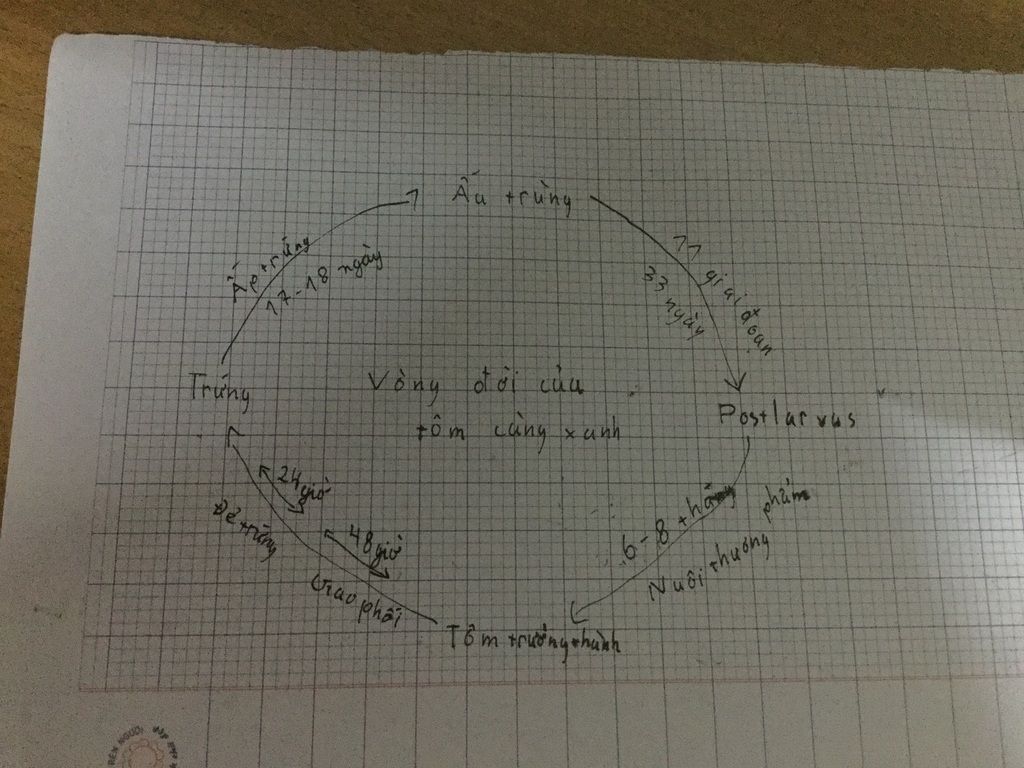 Ấu trùng
Ấp trứng
17-18 ngày
11 giai đoạn
33 ngày
Trứng
Vòng đời của
tôm càng xanh
Postlarvus
24 giờ
Đẻ trứng
48 giờ
Giao phối
6-8 tháng
Nuôi thương phẩm
Tôm trưởng thành